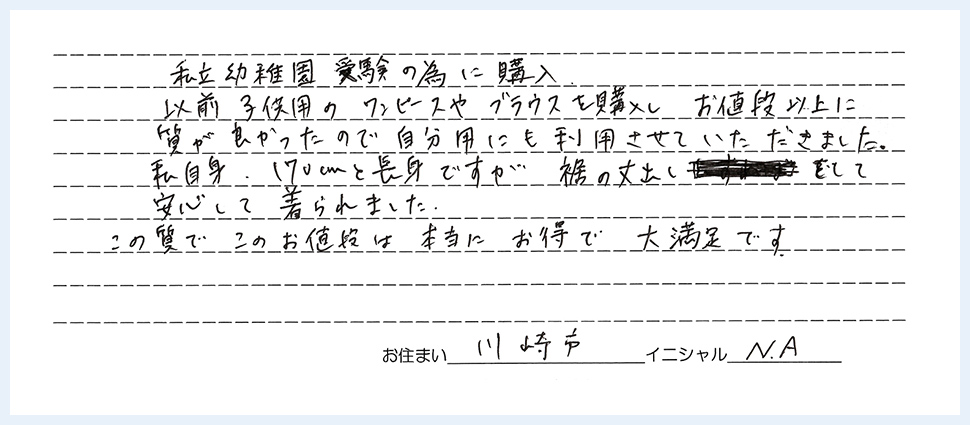 私立幼稚園 受験の為に購入.
以前 子供用の ワンピースや ブラウスを購入し お値段以上に
質が良かったので自分用にも利用させていただきました。
私自身. 170cmと長身ですが 裾の丈出し をして
安心して 着られました.
この質で このお値段は 本当に お得で 大満足です.
お住まい 川崎市 イニシャル N.A